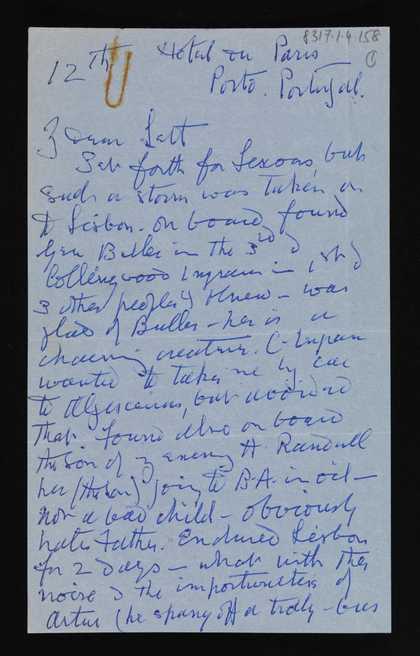 8317.1.4.158
①
12th Hotel du Paris
Porto. Portugal.
dear
Set forth for but
such a storm was taken on
to Lisbon. on board found
Gen Buller in the 3rd &
Collingwood Ingram in 1st &
3 other people I knew – was
glad of Buller – he is a
charming creature. C-Ingram
wanted to take me by car
to Algeciras, but avoided
that. Found also on board
the son of my enemy H. Randall
he (the son) going to B.A. in oil –
not a bad child – obviously
hates Father. Endured Lisbon
for 2 days – what with the
noise & the importunities of
Artur (he sprang off a trolly-bus